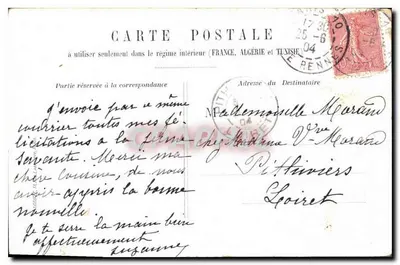 CARTE POSTALE
à utiliser seulement dans le régime intérieur (FRANCE, ALGÉRIE et TUNISIE)
Partie réservée à la correspondance
Adresse du Destinataire
25-6
04
RENNES
J'envoie par ce même
courrier toutes mes fé-
licitations à la
servante. Merci ma
chère cousine, de nous
avoir appris la bonne
nouvelle
Je te serre la main bien
affectueusement
Suzanne
Mademoiselle Morand
chez Madame Vve Morand
Pithiviers
Loiret
04